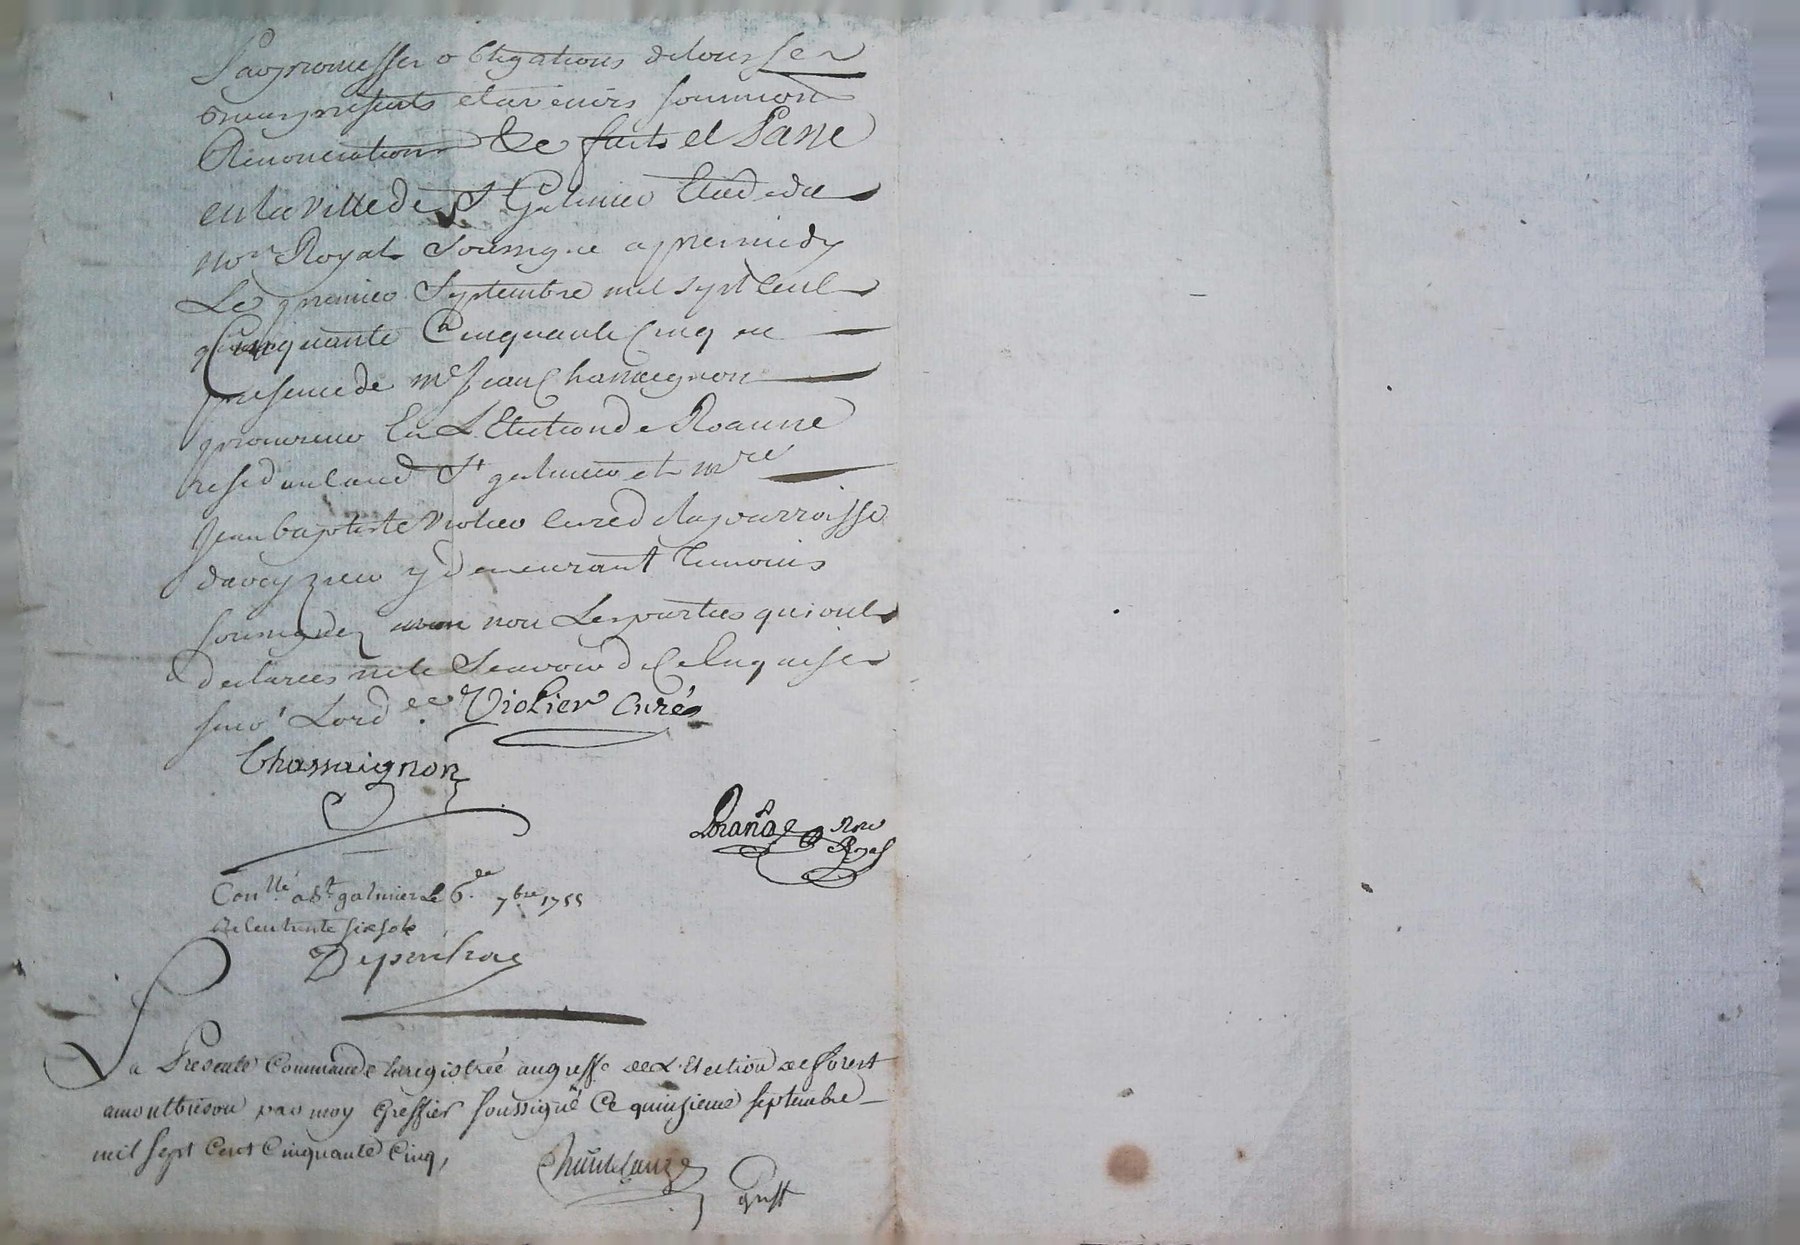 Par promesses obligations de tous ses
biens presents et avenirs soumission
Renonciation &c faits et Passe
en la ville de St Galmier Etude du
nore Royal soussigne apres midy
Le premier septembre mil sept cent
Cinquante Cinq en
presence de me Jean Chassaignon
procureur En L'Election de Roanne
residant aud St galmier et mre
Jean baptiste violier cured de la parroisse
daveyzieu y demeurant temoins
soussignez non Les parties qui ont
declarees ne le scavoir de Ce Enquises
Violier Curé
Chassaignon
nore Royal
Conllé a St galmier Le 6. 7bre 1755
La Presente Commande Enregistrée au greffe de L'Election de forest
a montbrison par moy Greffier soussigné Ce quinsieme septembre
mil sept Cent Cinquante Cinq,
greff